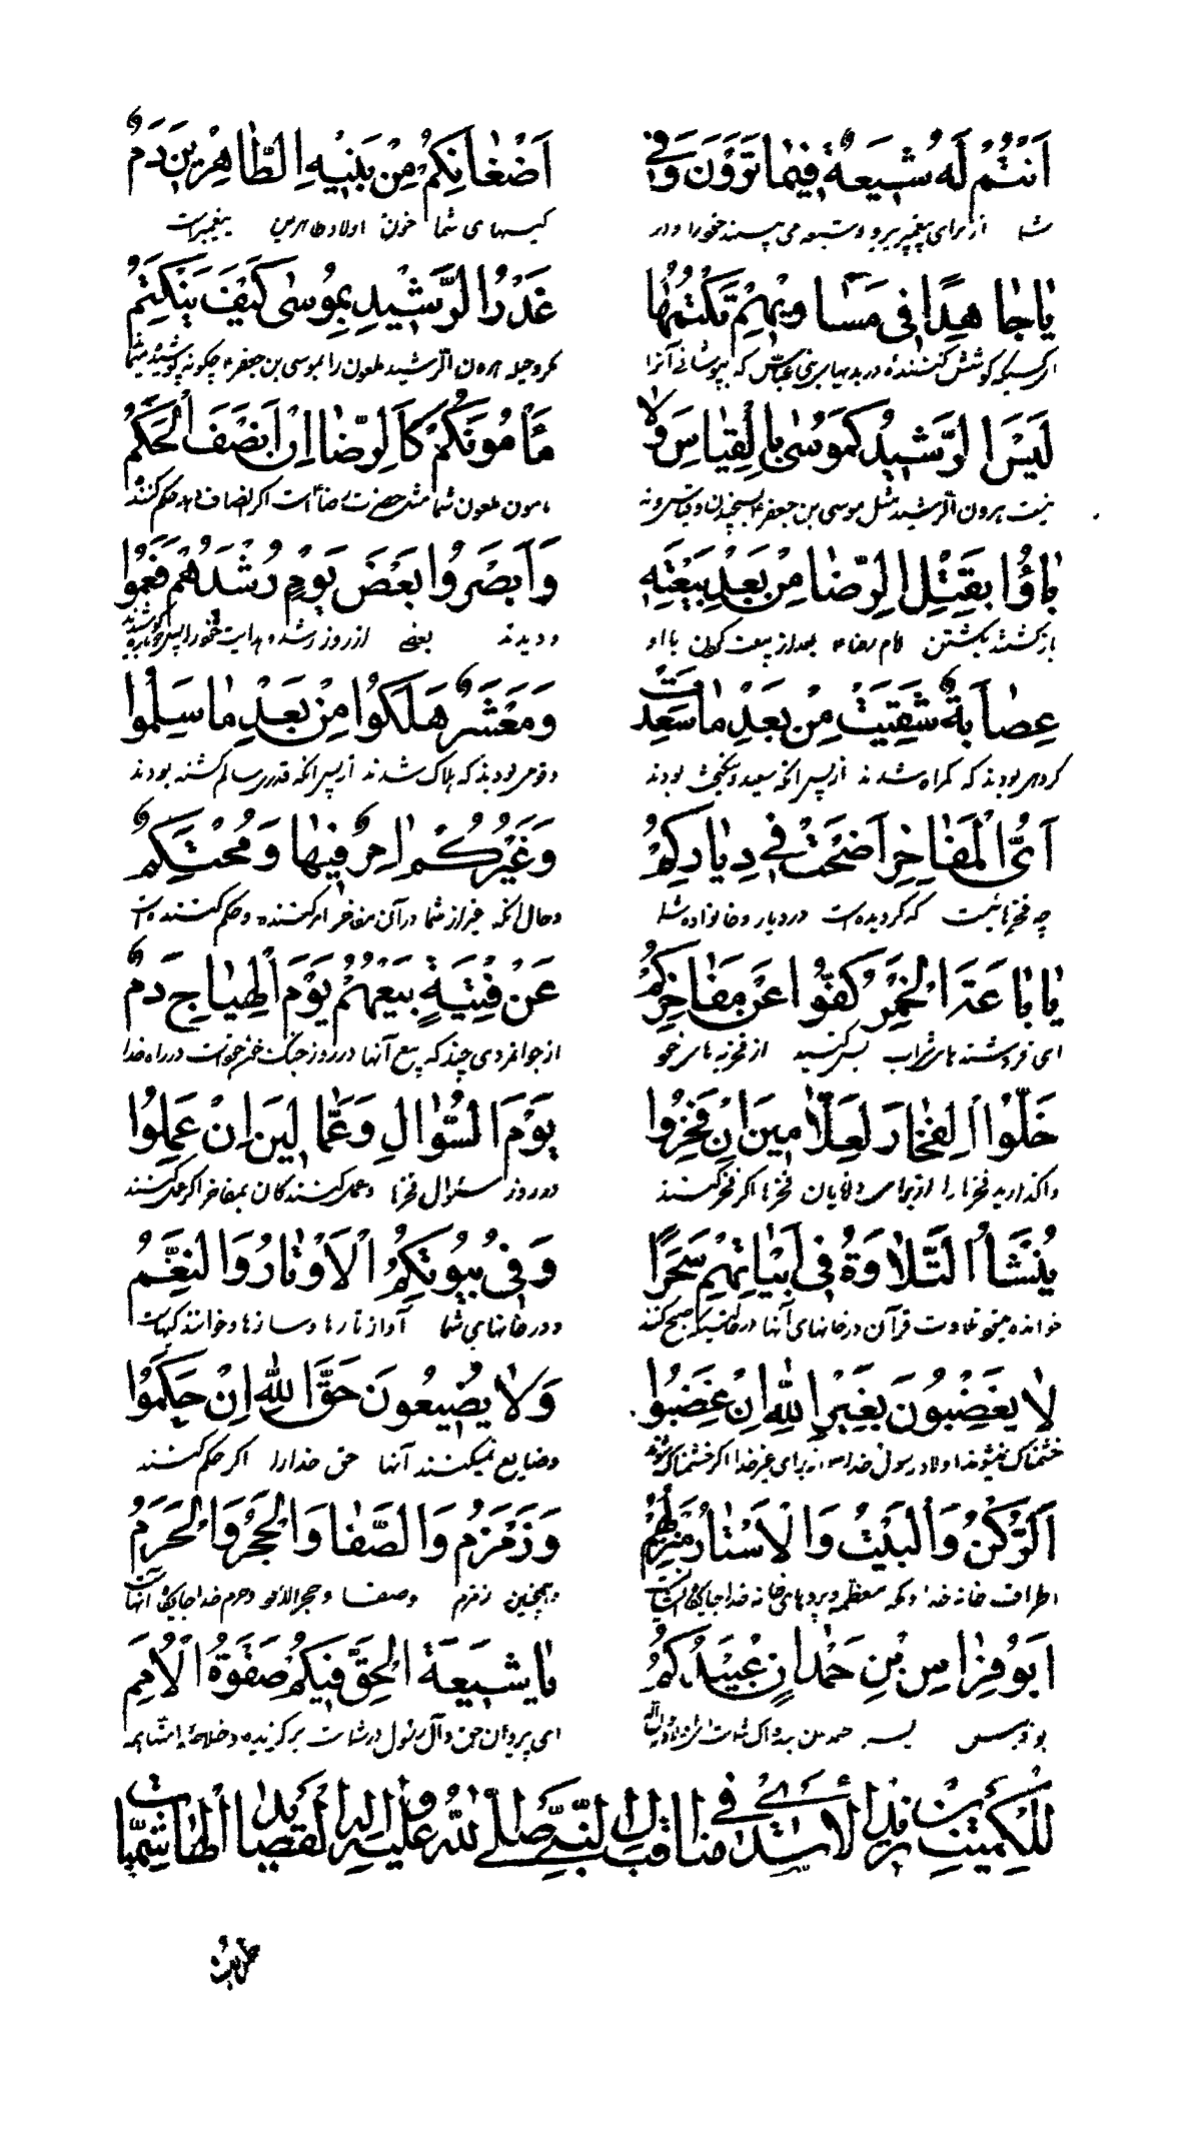 اَنْتُمْ لَهُ شیعَةٌ فیما تَرَوْنَ وَفی اَضْغانِکُمْ مِنْ بَنیهِ الطّاهِرینَ دَمٌ
شما از برای پیغمبر پیرو و شیعه می پسندید خود را و در کیسهای شما خون اولاد طاهرین پیغمبر است
یا جاهِدًا فی مَساویهِمْ تَکَتُّمُها غَدْرُ الرَّشیدِ بِموُسی کَیْفَ یَنْکَتِمُ
ای کسیکه کوشش کننده در بدیهای بنی عباس که بپوشانی آنرا مکر و حیله هرون الرشید ملعون را بموسی بن جعفر چگونه پوشید شما
لَیْسَ الرَّشیدُ کَموُسی بِالْقِیاسِ وَلا مَأموُنُکُمْ کَالرِّضا اِنْ اَنْصَفَ الْحَکَمُ
نیست هرون الرشید مثل موسی بن جعفر بسنجیدن و قیاس و نه مامون ملعون شما مثل حضرت رضا است اگر انصاف دهد حکم کننده
باؤُا بِقَتْلِ الرِّضا مِنْ بَعْدِ بَیْعَتِهِ وَاَبْصَروُا بَعْضَ یَوْمٍ رُشْدَهُمْ فَعَموُا
بازگشتند بکشتن امام رضا بعد از بیعت کردن با او و دیدند بعضی از روز رشد و هدایت خود را پس
عِصابَةٌ شَقِیَتْ مِنْ بَعْدِ ما سَعِدَتْ وَمَعْشَرٌ هَلَکوُا مِنْ بَعْدِ ما سَلِموُا
گروهی بودند که گمراه شدند از پس آنکه سعید و نیکبخت بودند و قومی بودند که هلاک شدند از پس آنکه قدری سالم گشته بودند
اَیُّ الْمَفاخِرِ اَضْحَتْ فی دِیارِکُمُ وَغَیْرُکُمْ امِرٌ فیها وَمُحْتَکِمٌ
چه فخرهائیست که گردیده است در دیار و خانواده شما و حال آنکه غیر از شما در آن مفاخر امر کننده و حکم کننده است
یا باعَةَ الْخَمْرِ کُفّوُا عَنْ مَفاخِرِکُمْ عَنْ فِتْیَةٍ بَیْعُهُمْ یَوْمَ الْهِیاجِ دَمٌ
ای فروشنده های شراب بس کنید از فخریه های خود از جوانمردی چند که بیع آنها در روز جنگ خونست در راه خدا
خَلّوُا الْفِخارَ لِعَلّامینَ اِنْ فَخِروُا یَوْمَ السُّؤالِ وَعَمّالینَ اِنْ عَمِلوُا
واگذارید فخرها را از برای دانایان فخرها اگر فخر کنند در روز سئوال فخرها و عمل کنندگان بمفاخر اگر عمل کنند
یُنْشَأُ التِّلاوَةُ فی اَبْیاتِهِمْ سَحَرًا وَفی بُیوُتِکُمُ الْاَوْتارُ وَالنَّغَمُ
خوانده میشود تلاوت قرآن در خانهای آنها و در خانهای شما آواز تارها و سازها و خوانندگیهاست
لا یَغْضَبوُنَ بِغَیْرِ اللهِ اِنْ غَضِبوُا وَلا یُضیعوُنَ حَقَّ اللهِ اِنْ حَکَموُا
خشمناک نمیشوند اولاد رسول خدا برای غیر خدا اگر خشمناک شوند و ضایع نمیکنند آنها حق خدا را اگر حکم کنند
اَلرُّکْنُ وَالْبَیْتُ وَالْاَسْتارُ مَنْزِلُهُمْ وَزَمْزَمُ وَالصَّفا وَالْحِجْرُ وَالْحَرَمُ
اطراف خانه خدا و مکه معظمه و پردهای خانه خدا جایگاه و همچنین زمزم وصفا و حجر الاسود و حرم خدا جایگاه آنهاست
اَبوُ فِراسِ بْنِ حَمْدانٍ عُبَیْدُکُمُ یا شیعَةَ الْحَقِّ فیکُمْ صَفْوَةُ الْاُمَمِ
ای پیروان حق و آل رسول در شماست برگزیده و خلاصه امتها همه
لِلْکُمَیْتِ بْنِ زِیْدِ الْاَسَدِیِّ فی مَناقِبِ الِ النَّبِیِّ صَلَّی اللهُ عَلَیْهِ وَالِهِ الْقَصایِدُ الْهاشِمِیّاتُ